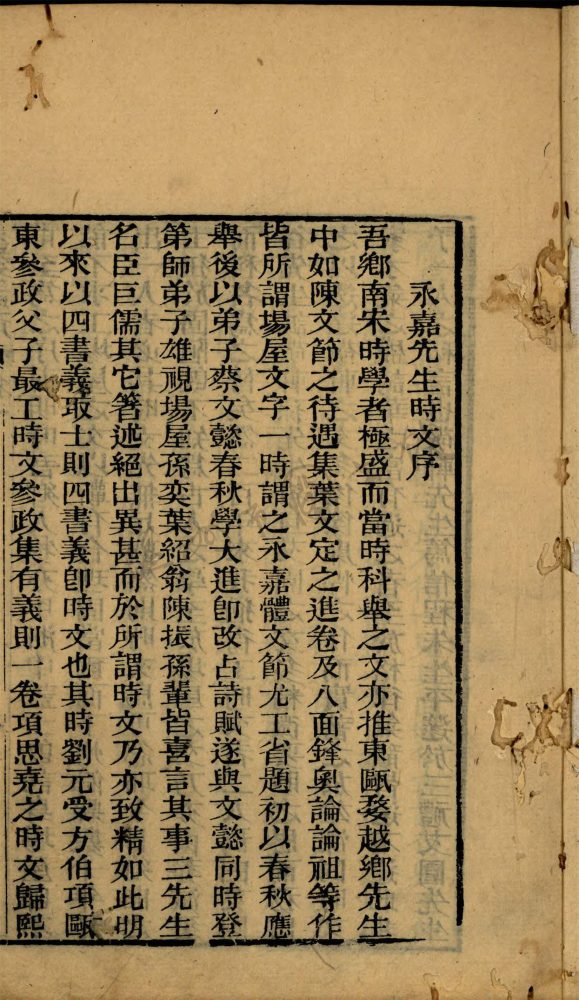 永嘉先生時文序
吾鄉南宋時學者極盛而當時科舉之文亦推東甌婺越鄉先生
中如陳文節之待遇集葉文定之進卷及八面鋒奧論論祖等作
皆所謂場屋文字一時謂之永嘉體文節尤工省題初以春秋應
舉後以弟子蔡文懿春秋學大進卽改占詩賦遂與文懿同時登
第師弟子雄視場屋孫奕葉紹翁陳振孫輩皆喜言其事三先生
名臣巨儒其它箸述絕出異甚而於所謂時文乃亦致精如此明
以來以四書義取士則四書義卽時文也其時劉元受方伯項甌
東參政父子最工時文參政集有義則一卷項思堯之時文歸熙